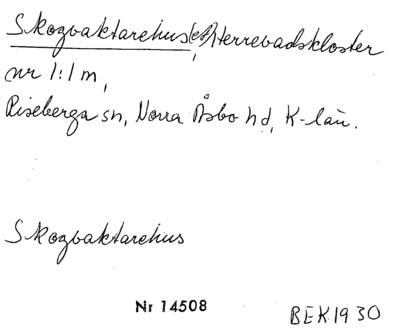 Skogvaktarehus(et), Herrevadskloster
nr 1:1 m,
Riseberga sn, Norra Åsbo hd, K-län.
Skogvaktarehus
Nr 14508
BEK 1930